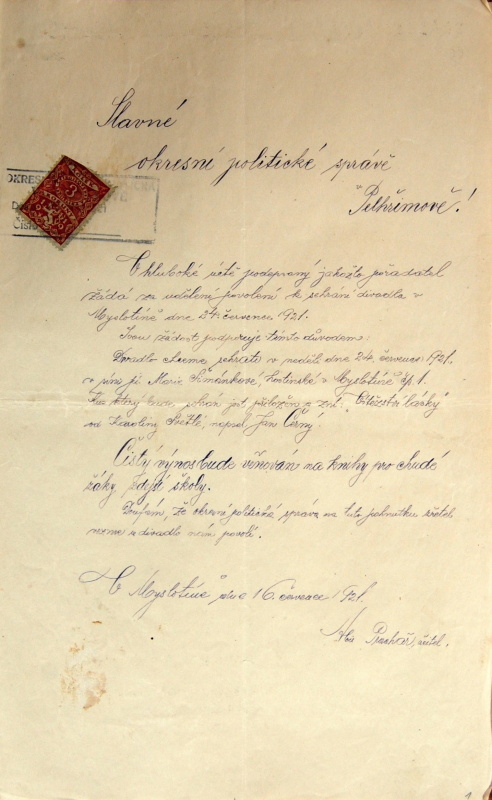 Slavné
okresní politické správě
v Pelhřimově!
OKRES
ČÍSL
V hluboké úctě podepsaný jakožto pořadatel
žádá za udělení povolení k sehrání divadla v
Myslotíně dne 24. července 1921.
Svou žádost podporuje tímto důvodem:
Divadlo chceme sehráti v neděli dne 24. července 1921.
v síni pí. Marie Šimánkové, hostinské v Myslotíně čp. 1.
Kus který bude sehrán jest přiložen a zní: "Vítězství lásky"
od Karoliny Světlé, napsal Jan Černý.
Čistý výnos bude věnován na knihy pro chudé
žáky zdejší školy.
Doufám, že okresní politická správa na tuto jednotku zřetel
vezme a divadlo nám povolí.
V Myslotíně dne 16. července 1921.
Prachař, učitel.